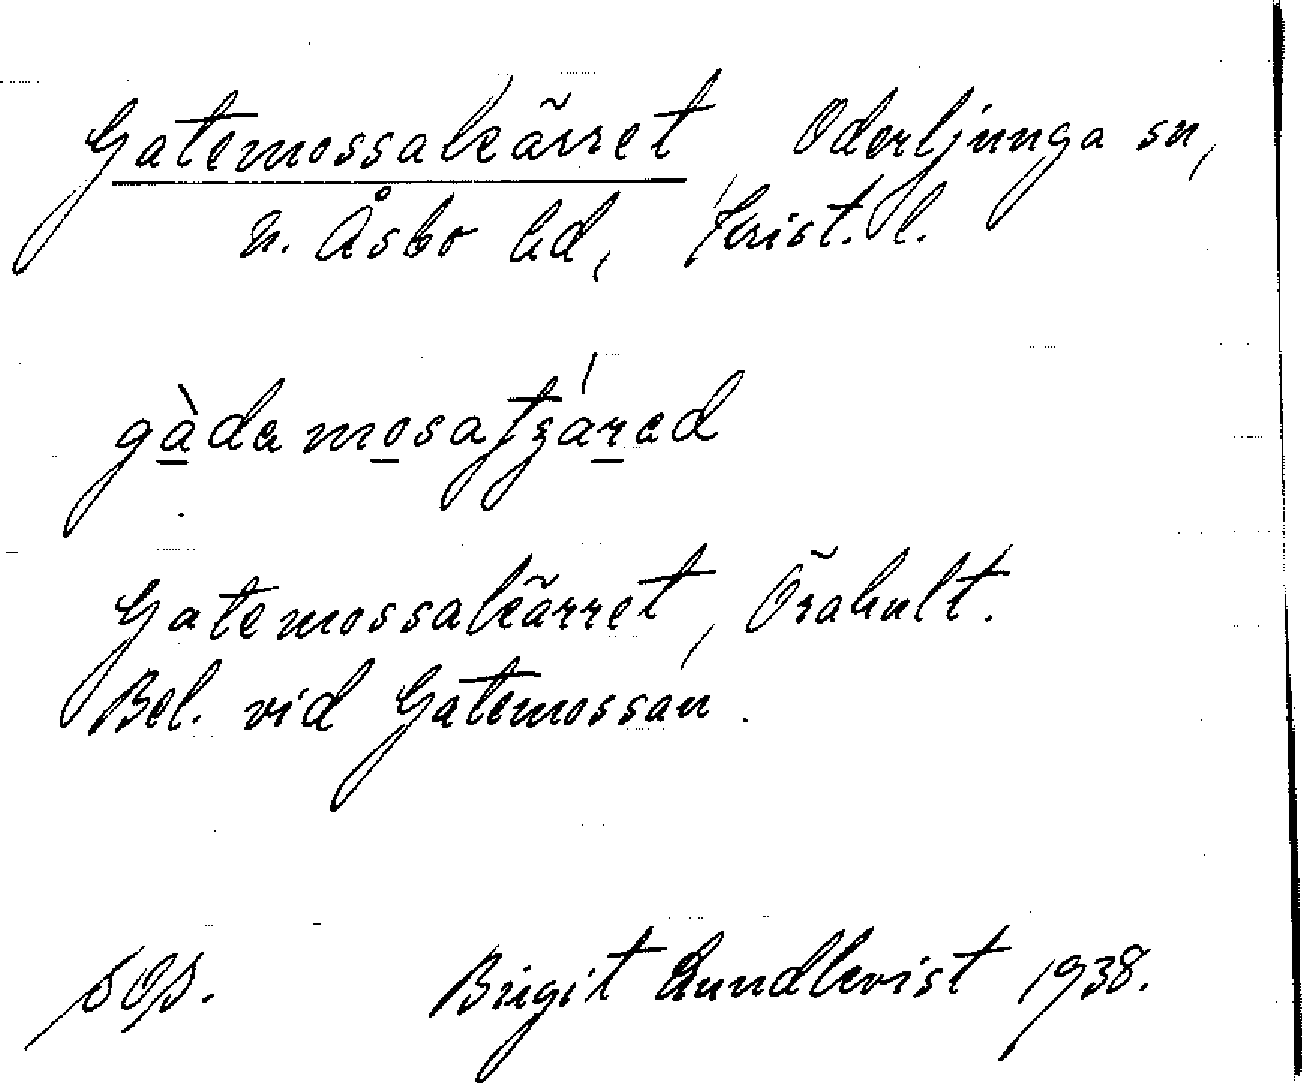 Gatemossakärret, Oderljunga sn,
N. Åsbo hd, Krist. l.
gàdamosatʒárad
Gatemossakärret, Örahult.
Bel. vid Gatemossan.
SOS. Birgit Lundkvist 1938.